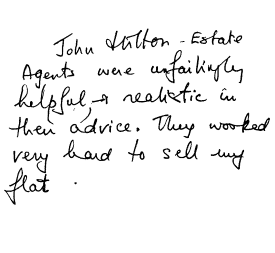 John Hilton - Estate
Agents were unfailingly
helpful, & realistic in
their advice. They worked
very hard to sell my
flat .